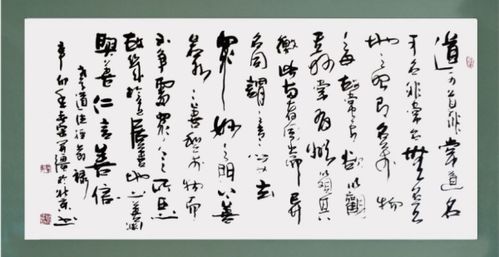 道可道非常道名
可名非常名無名
地之始名萬物
之母故常無欲以觀
其妙常有欲以觀其
徼此兩者同出而異
名同謂之玄玄之又玄
眾妙之門上善
若水水善利萬物而
不爭處眾人之所惡
故幾於道居善地心善淵
與善仁言善信
老子道德經節錄
辛卯年於北京